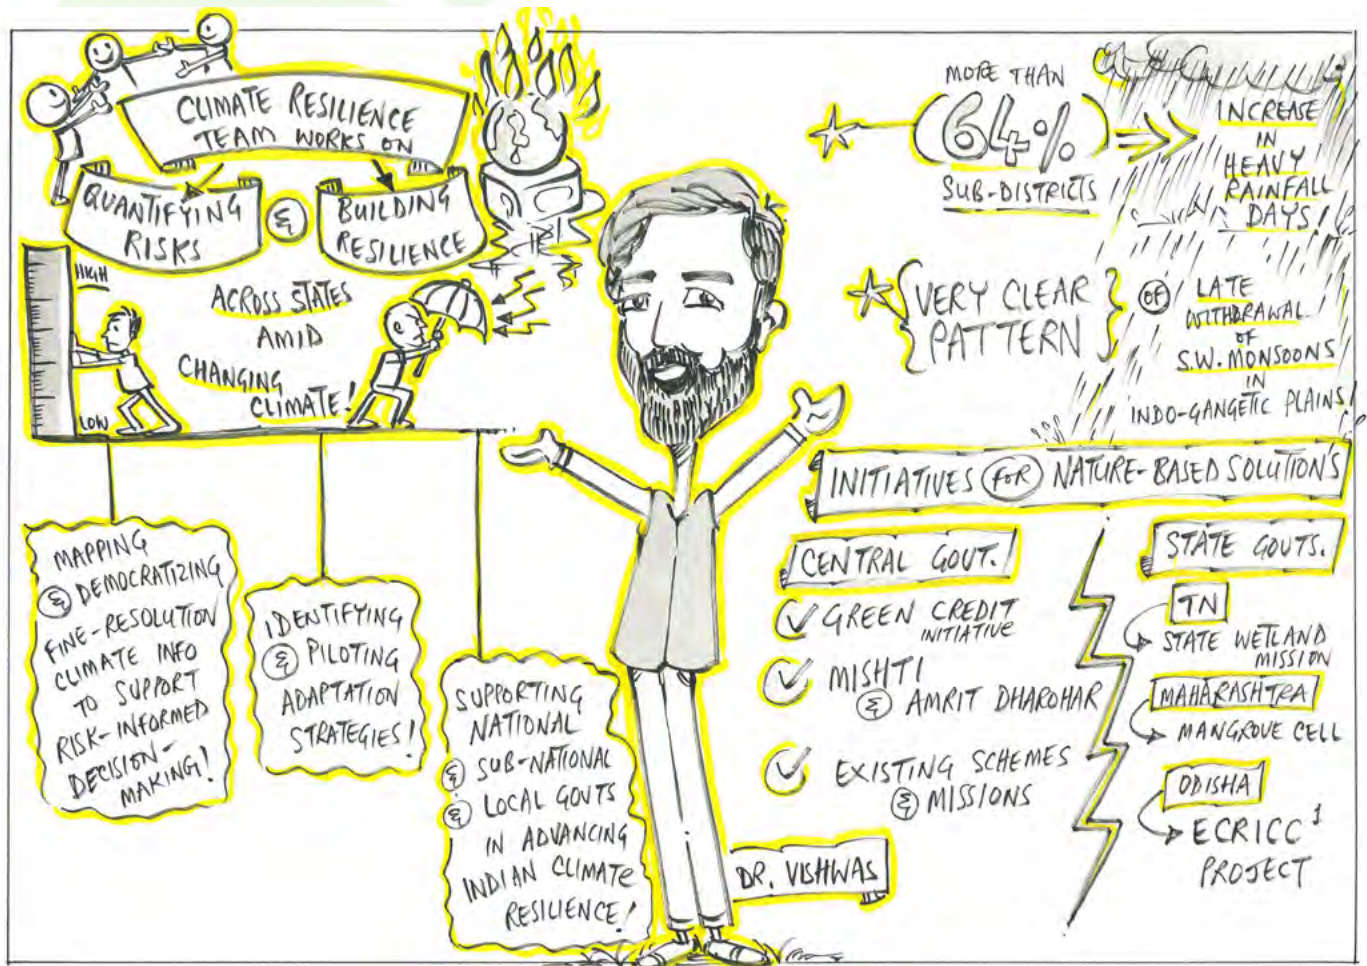 CLIMATE RESILIENCE
TEAM WORKS ON
QUANTIFYING
RISKS
&
BUILDING
RESILIENCE
HIGH
LOW
ACROSS STATES
AMID
CHANGING
CLIMATE!
MAPPING
& DEMOCRATIZING
FINE-RESOLUTION
CLIMATE INFO
TO SUPPORT
RISK-INFORMED
DECISION-
MAKING!
IDENTIFYING
& PILOTING
ADAPTATION
STRATEGIES!
SUPPORTING
NATIONAL
& SUB-NATIONAL
& LOCAL GOVTS
IN ADVANCING
INDIAN CLIMATE
RESILIENCE!
DR. VISHWAS
MORE THAN
64%
SUB-DISTRICTS
INCREASE
IN
HEAVY
RAINFALL
DAYS!
VERY CLEAR
PATTERN
OF
LATE
WITHDRAWAL
OF
S.W. MONSOONS
IN
INDO-GANGETIC PLAINS!
INITIATIVES FOR NATURE-BASED SOLUTION'S
CENTRAL GOVT.!
GREEN CREDIT
INITIATIVE
MISHTI
& AMRIT DHAROHAR
EXISTING SCHEMES
& MISSIONS
STATE GOVTS.
TN
STATE WETLAND
MISSION
MAHARASHTRA
MANGROVE CELL
ODISHA
ECRICC 1
PROJECT